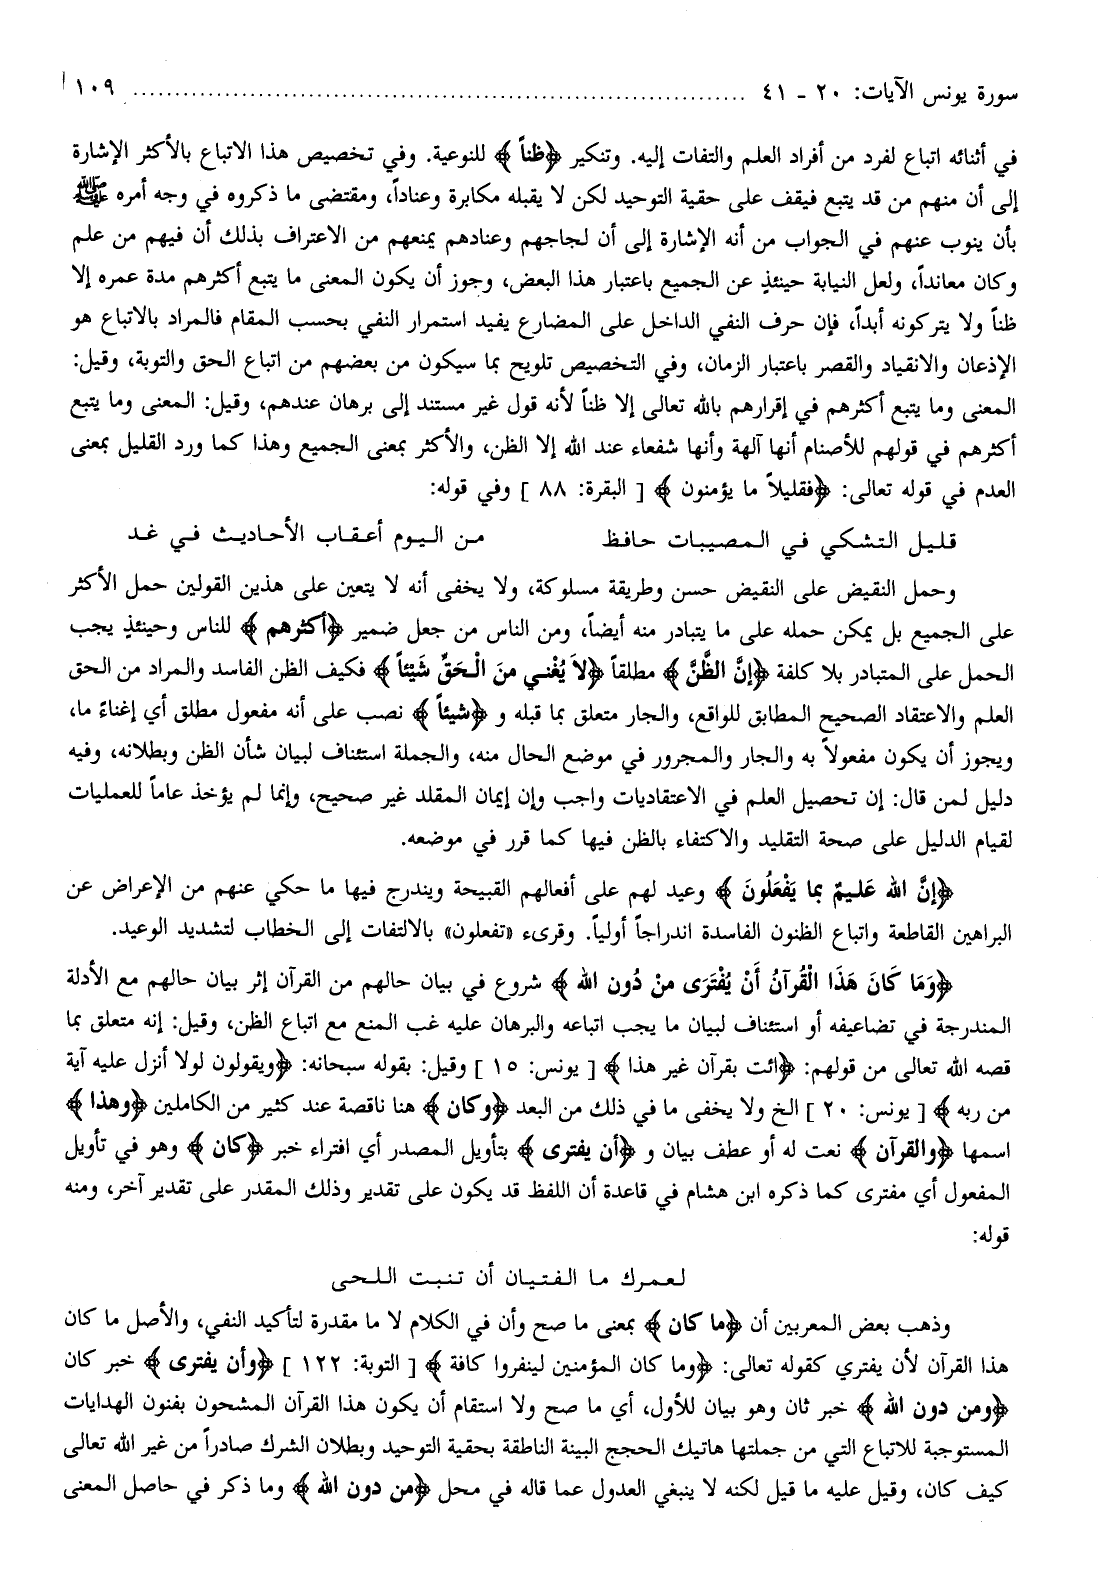 سورة يونس الآيات: ٢٠ - ٤١ ........................................................................ ١٠٩
في أثنائه اتباع لفرد من أفراد العلم والتفات إليه. وتنكير ﴿ظناً﴾ للنوعية. وفي تخصيص هذا الاتباع بالأكثر الإشارة
إلى أن منهم من قد يتبع فيقف على حقية التوحيد لكن لا يقبله مكابرة وعناداً، ومقتضى ما ذكروه في وجه أمره ﷺ
بأن ينوب عنهم في الجواب من أنه الإشارة إلى أن لجاجهم وعنادهم يمنعهم من الاعتراف بذلك أن فيهم من علم
وكان معانداً، ولعل النيابة حينئذٍ عن الجميع باعتبار هذا البعض، وجوز أن يكون المعنى ما يتبع أكثرهم مدة عمره إلا
ظناً ولا يتركونه أبداً، فإن حرف النفي الداخل على المضارع يفيد استمرار النفي بحسب المقام فالمراد بالاتباع هو
الإذعان والانقياد والقصر باعتبار الزمان، وفي التخصيص تلويح بما سيكون من بعضهم من اتباع الحق والتوبة، وقيل:
المعنى وما يتبع أكثرهم في إقرارهم بالله تعالى إلا ظناً لأنه قول غير مستند إلى برهان عندهم، وقيل: المعنى وما يتبع
أكثرهم في قولهم للأصنام أنها آلهة وأنها شفعاء عند الله إلا الظن، والأكثر بمعنى الجميع وهذا كما ورد القليل بمعنى
العدم في قوله تعالى: ﴿فقليلاً ما يؤمنون﴾ [ البقرة: ٨٨ ] وفي قوله:
قليل التشكي في المصيبات حافظ من اليوم أعقاب الأحاديث في غد
وحمل النقيض على النقيض حسن وطريقة مسلوكة، ولا يخفى أنه لا يتعين على هذين القولين حمل الأكثر
على الجميع بل يمكن حمله على ما يتبادر منه أيضاً، ومن الناس من جعل ضمير ﴿أكثرهم﴾ للناس وحينئذٍ يجب
الحمل على المتبادر بلا كلفة ﴿إنَّ الظَّنَّ﴾ مطلقاً ﴿لاَ يُغْني منَ الْحَقِّ شَيْئاً﴾ فكيف الظن الفاسد والمراد من الحق
العلم والاعتقاد الصحيح المطابق للواقع، والجار متعلق بما قبله و ﴿شيئاً﴾ نصب على أنه مفعول مطلق أي إغناءً ما،
ويجوز أن يكون مفعولاً به والجار والمجرور في موضع الحال منه، والجملة استئناف لبيان شأن الظن وبطلانه، وفيه
دليل لمن قال: إن تحصيل العلم في الاعتقاديات واجب وإن إيمان المقلد غير صحيح، وإنما لم يؤخذ عاماً للعمليات
لقيام الدليل على صحة التقليد والاكتفاء بالظن فيها كما قرر في موضعه.
﴿إنَّ الله عَليمٌ بما يَفْعَلُونَ﴾ وعيد لهم على أفعالهم القبيحة ويندرج فيها ما حكي عنهم من الإعراض عن
البراهين القاطعة واتباع الظنون الفاسدة اندراجاً أولياً. وقرىء «تفعلون» بالالتفات إلى الخطاب لتشديد الوعيد.
﴿وَمَا كَانَ هَذَا الْقُرآنُ أَنْ يُفْتَرَى منْ دُون الله﴾ شروع في بيان حالهم من القرآن إثر بيان حالهم مع الأدلة
المندرجة في تضاعيفه أو استئناف لبيان ما يجب اتباعه والبرهان عليه غب المنع مع اتباع الظن، وقيل: إنه متعلق بما
قصه الله تعالى من قولهم: ﴿ائت بقرآن غير هذا﴾ [ يونس: ١٥ ] وقيل: بقوله سبحانه: ﴿ويقولون لولا أنزل عليه آية
من ربه﴾ [ يونس: ٢٠ ] الخ ولا يخفى ما في ذلك من البعد ﴿وكان﴾ هنا ناقصة عند كثير من الكاملين ﴿وهذا﴾
اسمها ﴿والقرآن﴾ نعت له أو عطف بيان و ﴿أن يفترى﴾ بتأويل المصدر أي افتراء خبر ﴿كان﴾ وهو في تأويل
المفعول أي مفترى كما ذكره ابن هشام في قاعدة أن اللفظ قد يكون على تقدير وذلك المقدر على تقدير آخر، ومنه
قوله:
لعمرك ما الفتيان أن تنبت اللحى
وذهب بعض المعربين أن ﴿ما كان﴾ بمعنى ما صح وأن في الكلام لا ما مقدرة لتأكيد النفي، والأصل ما كان
هذا القرآن لأن يفتري كقوله تعالى: ﴿وما كان المؤمنين لينفروا كافة﴾ [ التوبة: ١٢٢ ] ﴿وأن يفترى﴾ خبر كان
﴿ومن دون الله﴾ خبر ثان وهو بيان للأول، أي ما صح ولا استقام أن يكون هذا القرآن المشحون بفنون الهدايات
المستوجبة للاتباع التي من جملتها هاتيك الحجج البينة الناطقة بحقية التوحيد وبطلان الشرك صادراً من غير الله تعالى
كيف كان، وقيل عليه ما قيل لكنه لا ينبغي العدول عما قاله في محل ﴿من دون الله﴾ وما ذكر في حاصل المعنى